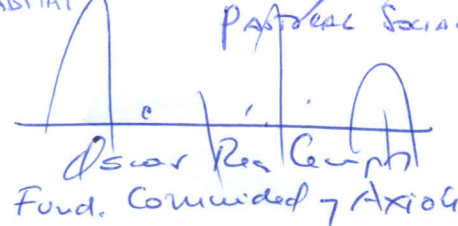 PASTORAL SOCIA
Oscar Rea Campos
Fund. Comunidad y Axio